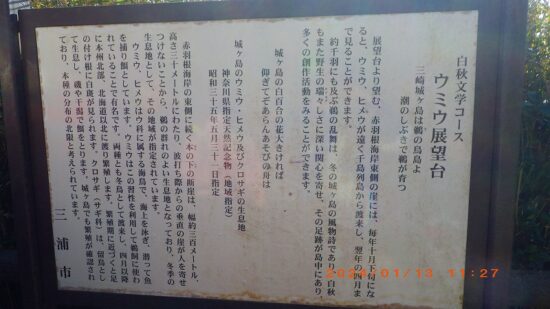 白秋文学コース
ウミウ展望台
三崎城ヶ島は鵜の鳥島よ
潮のしぶきで鵜が育つ
展望台より望む、赤羽根海岸東側の崖には、毎年十月下旬にな
ると、ウミウ、ヒメウが遠く千島列島から渡来し、翌年の四月ま
で見ることができます。
約千羽にも及ぶ鵜の乱舞は、冬の城ヶ島の風物詩であり、白秋
もまた野生の瑞々しさに深い関心を寄せ、その足跡が島中にあり、
多くの創作活動をみることができます。
城ヶ島の白百合の花大きければ
仰ぎてぞあらんあそびの舟は
城ヶ島のウミウ、ヒメウ及びクロサギの生息地
神奈川県指定天然記念物(地域指定)
昭和三十五年五月三十一日指定
赤羽根海岸の東側に続く本の下の断崖は、幅約三百メートル、
高さ三十メートルにわたり、波打ち際からの垂直の崖が人を寄せ
つけないことから、鵜の群れのよい生息地となっており、冬季の
生息地として、その地域が指定されています。
ウミウ、ヒメウはウ科に属する海鳥で、海上を泳ぎ、潜って魚
を捕り餌としています。ウミウはこの習性を利用して鵜飼に使わ
れていることで有名です。両種とも冬鳥として渡来し、四月以降
に本州北部、北海道以北に渡り繁殖します。繁殖期に近づくと足
の付け根に白斑が見られます。クロサギ(サギ科)は、留鳥とし
て生息し、磯や干潟で餌をとります。城ヶ島でも繁殖が確認され
ており、本種の分布の北限と考えられています。
三浦市
2024/01/13 11:27